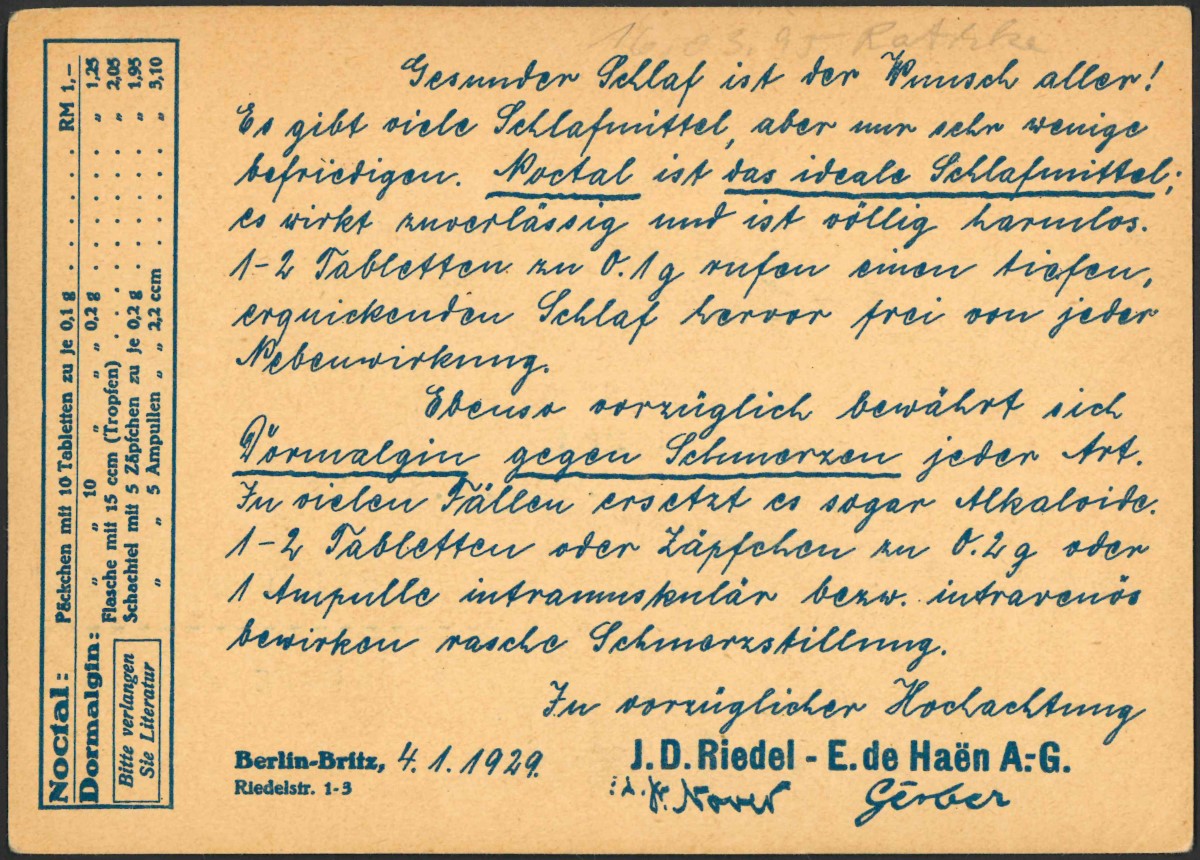 16.03.95 Ratzke
Gesunder Schlaf ist der Wunsch aller!
Es gibt viele Schlafmittel, aber nur sehr wenige
befriedigen. Noctal ist das ideale Schlafmittel;
es wirkt zuverlässig und ist völlig harmlos.
1-2 Tabletten zu 0.1g rufen einen tiefen,
erquickenden Schlaf hervor frei von jeder
Nebenwirkung.
Ebenso vorzüglich bewährt sich
Dormalgin gegen Schmerzen jeder Art.
In vielen Fällen ersetzt es sogar Alkaloide.
1-2 Tabletten oder Zäpfchen zu 0.2g oder
1 Ampulle intramuskulär bezw. intravenös
bewirken rasche Schmerzstillung.
In vorzüglicher Hochachtung
Berlin-Britz, 4.1.1929.
Riedelstr. 1-3
J. D. Riedel - E. de Haën A.-G.
Gerber
Noctal: Päckchen mit 10 Tabletten zu je 0,1 g . . . . . . RM 1,–
Dormalgin: „ „ 10 „ „ „ 0,2 g . . . . . . „ 1,25
Flasche mit 15 ccm (Tropfen) . . . . . . „ 2,05
Schachtel mit 5 Zäpfchen zu je 0,2 g . . . . . „ 1,95
„ „ 5 Ampullen „ „ 2,2 ccm . . . . „ 3,10
Bitte verlangen
Sie Literatur